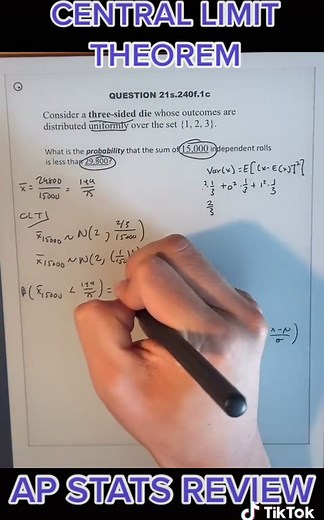 CENTRAL LIMIT
THEOREM
QUESTION 21s.240f.1c
Consider a three-sided die whose outcomes are
distributed uniformly over the set {1, 2, 3}.
What is the probability that the sum of 15,000 independent rolls
is less than 29,800?
Var(x) = E[(x-E(x))²]
x̄ = 29800/15000 = 149/75
1/3 + 0² · 1/3 + 1² · 1/3
2/3
CLT!
x̄15000 ~ N(2, 2/3/15000)
x̄15000 ~ N(2, (1/150)²
P(x̄15000 < 149/75) =
x-μ/σ)
AP STATS REVIEW
TikTok